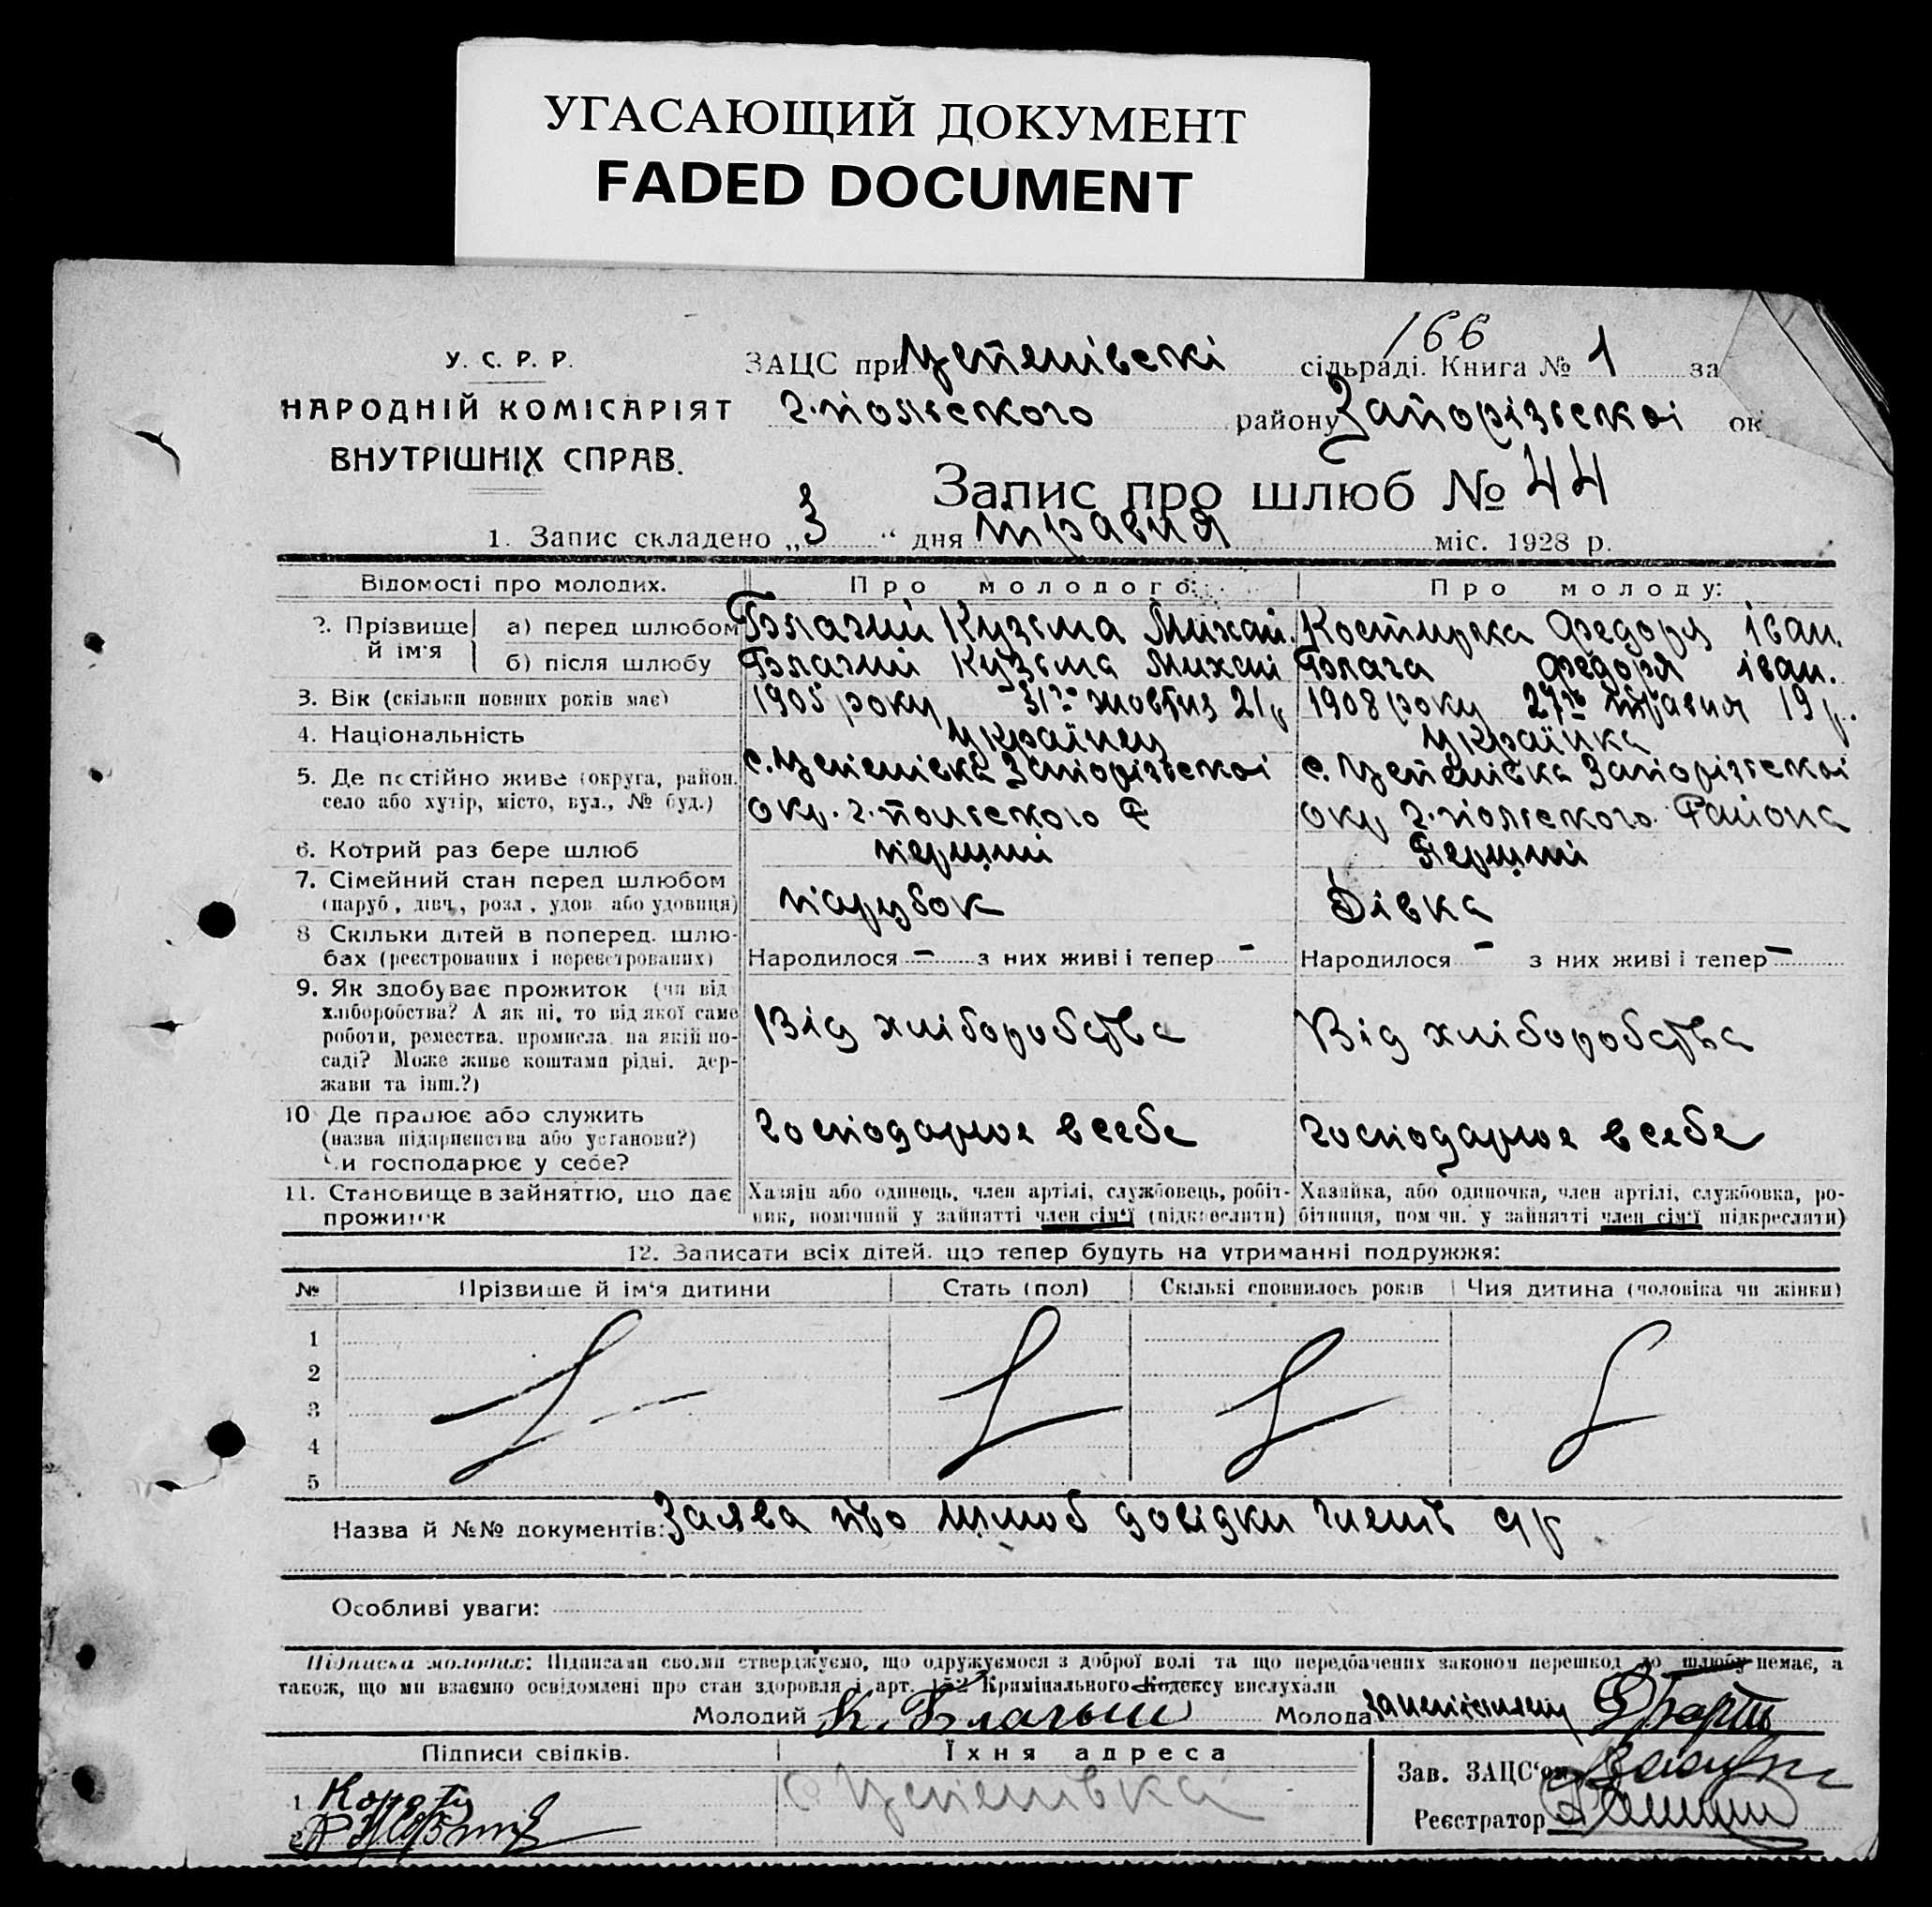 УГАСАЮЩИЙ ДОКУМЕНТ
FADED DOCUMENT
166
У. С. Р. Р.
НАРОДНІЙ КОМІСАРІЯТ
ВНУТРІШНІХ СПРАВ.
ЗАЦС при сільраді. Книга № 1 за
г. польского району Запорізьскої ок
Запис про шлюб № 44
1. Запис складено „3“ дня травня міс. 1928 р.
Відомості про молодих. Про молодого: Про молоду:
2. Прізвище й ім'я а) перед шлюбом Благий Кузьма Михай. Костирка Федора іван.
б) після шлюбу Благий Кузьма Михай Блага Федоря іван.
3. Вік (скільки повних років має) 1905 року 31го жовтня 21р 1908 року 27го травня 19 р.
4. Національність українец українка
5. Де постійно живе (округа, район, село або хутір, місто, вул., № буд.) Запорізьскої Запорізьскої
окр. г. польского Р окр г. польского Района
6. Котрий раз бере шлюб перший Перший
7. Сімейний стан перед шлюбом парубок Дівка
(паруб., дівч., розл., удов. або удовиця)
8 Скільки дітей в поперед. шлю-
бах (реєстрованих і нереєстрованих) Народилося — з них живі і тепер — Народилося — з них живі і тепер —
9. Як здобуває прожиток (чи від
хліборобства? А як ні, то від якої саме Від хліборобства Від хліборобства
роботи, ремества, промисла, на якій по-
саді? Може живе коштами рідні, дер-
жави та інш.?)
10 Де працює або служить господарює в себе господарює в себе
(назва підприємства або установи?)
Чи господарює у себе?
11. Становище в зайняттю, що дає Хазяїн або одинець, член артілі, службовець, робіт- Хазяйка, або одиночка, член артілі, службовка, ро-
прожиток ник, помічний у зайнятті член сім'ї (підкреслити) бітниця, помічн. у зайнятті член сім'ї підкреслити)
12. Записати всіх дітей, що тепер будуть на утриманні подружжя:
№ Прізвище й ім'я дитини Стать (пол) Скількі сповнилось років Чия дитина (чоловіка чи жінки)
1
2
3
4
5
Назва й №№ документів: Заява про шлюб довідки
Особливі уваги:
Підписка молодих: Підписами своїми стверджуємо, що одружуємося з доброї волі та що передбачених законом перешкод до шлюбу немає, а
також, що ми взаємно освідомлені про стан здоровля і арт. 152 Кримінального Кодексу вислухали
Молодий К. Благый Молода
Підписи свідків. Їхня адреса
Зав. ЗАЦС'ом
1
Реєстратор
2